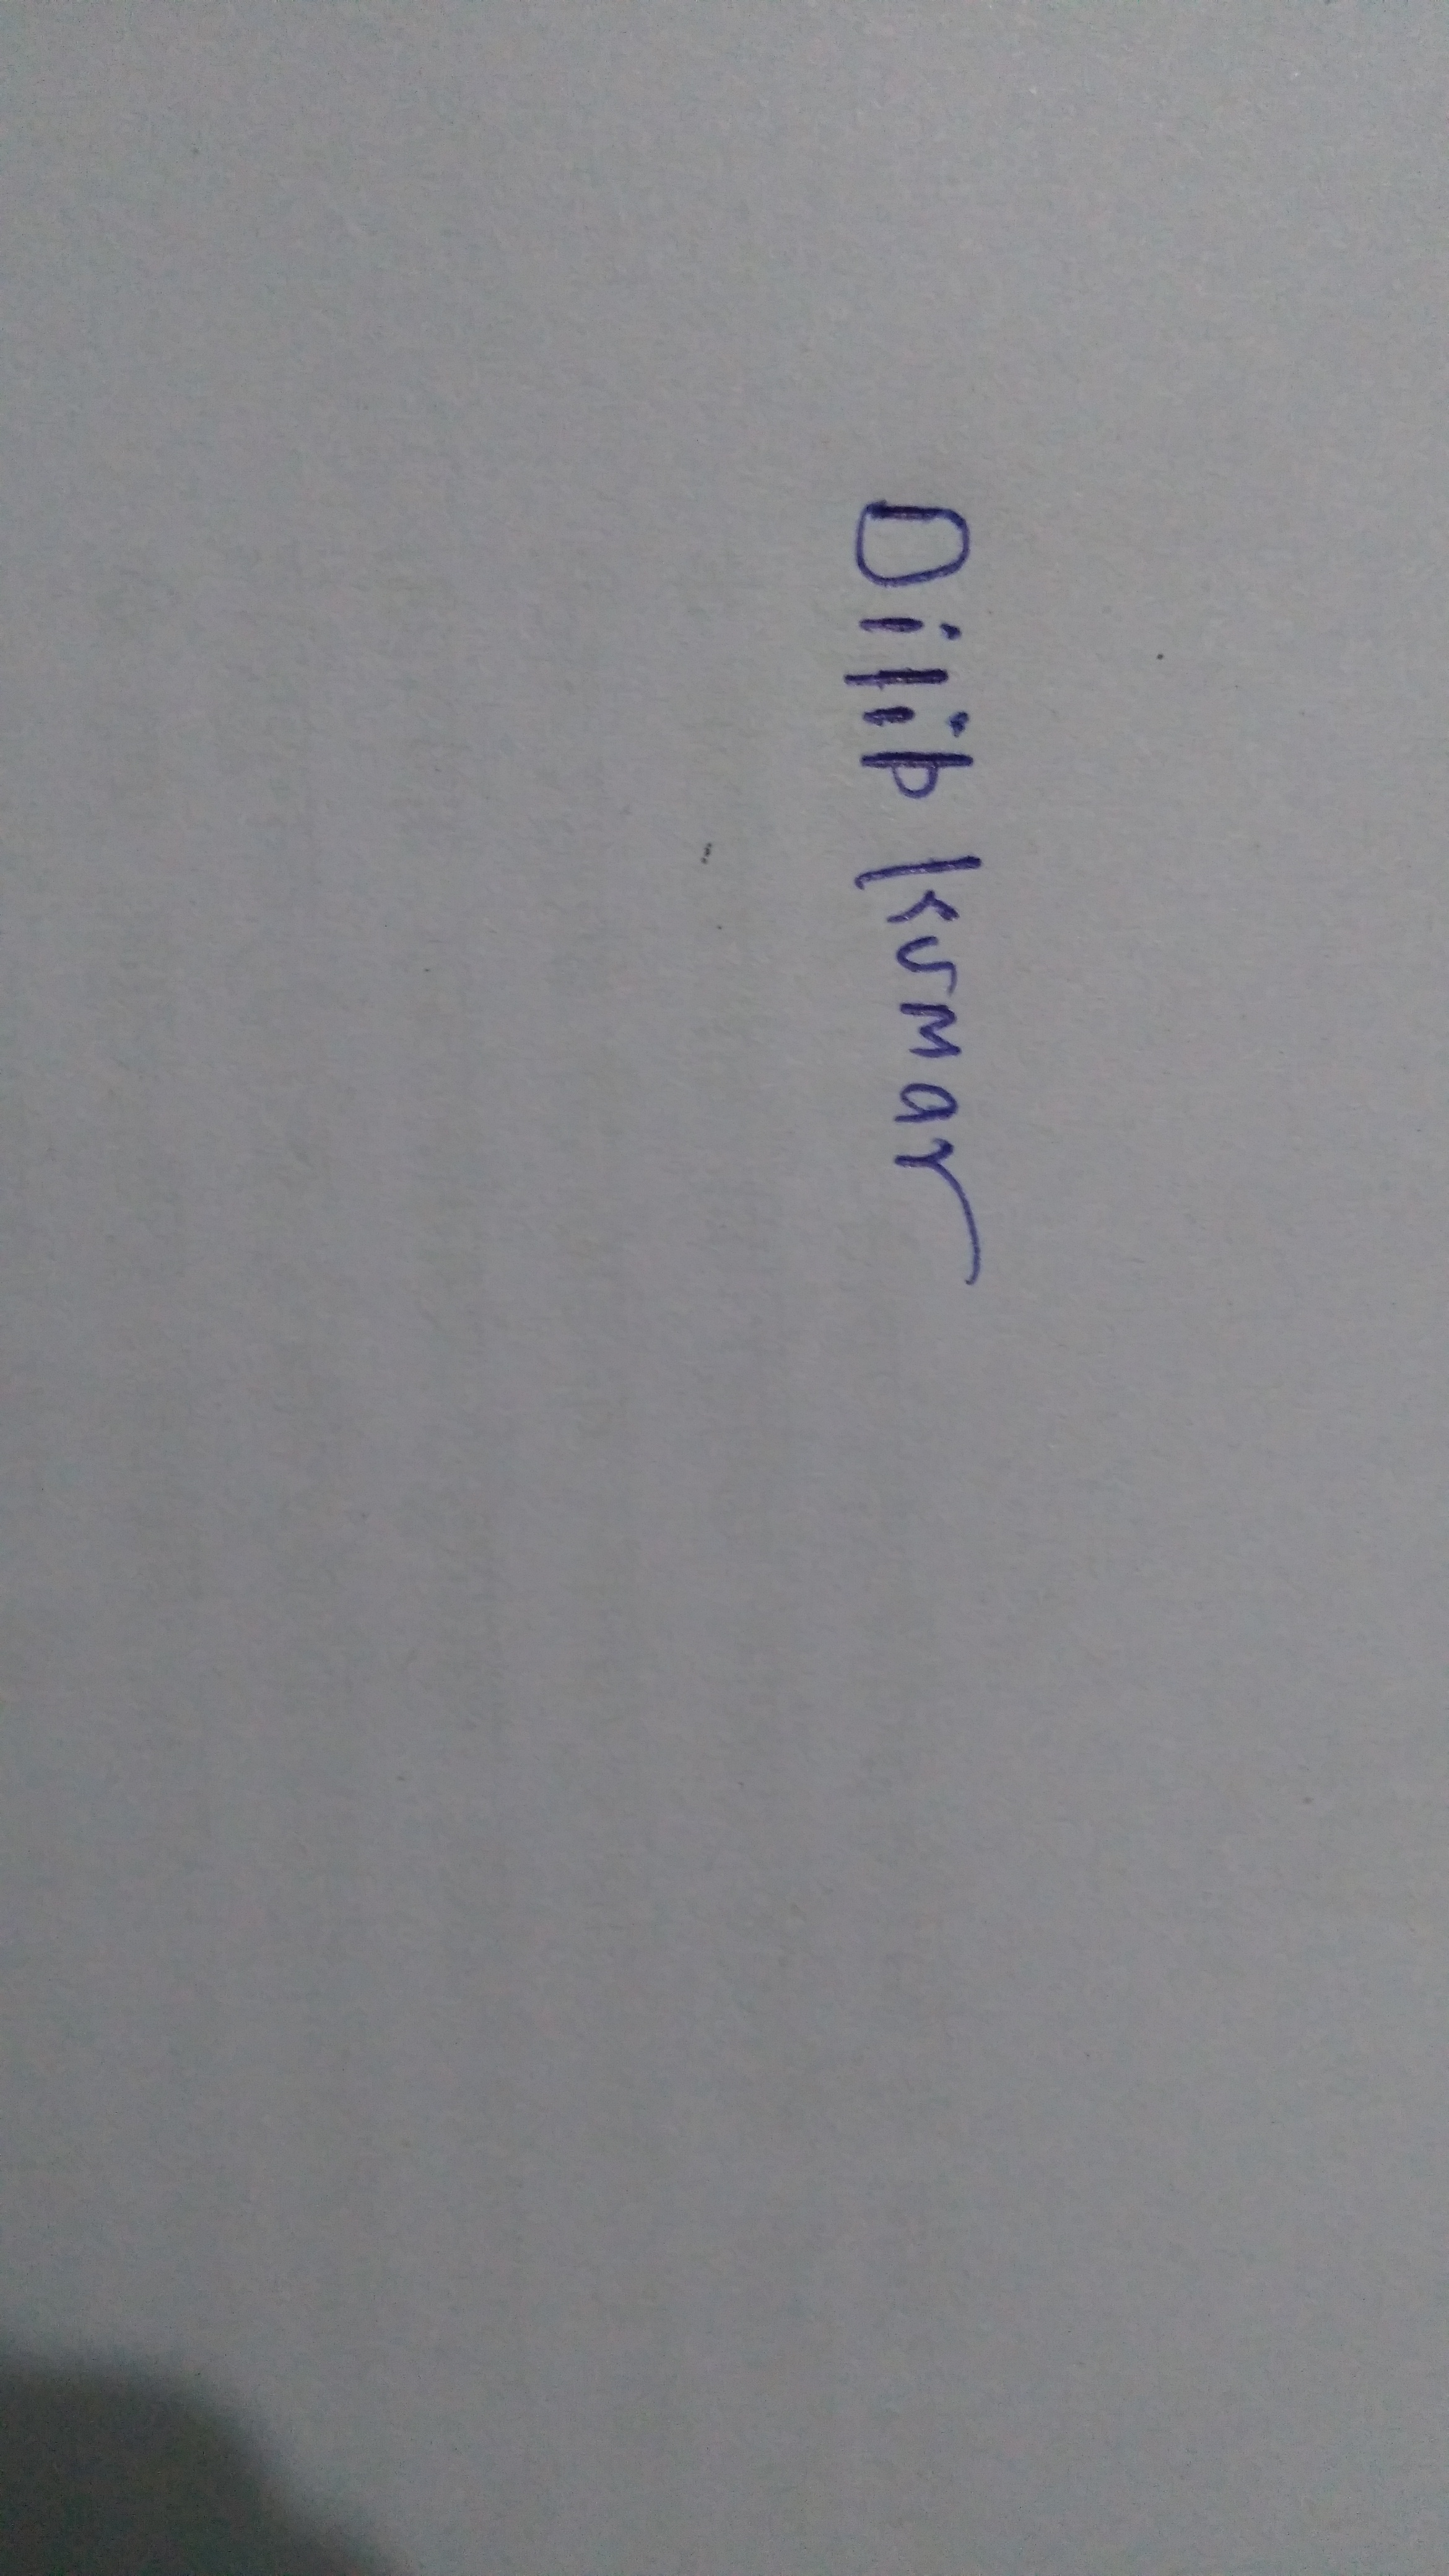 Dilip kumar